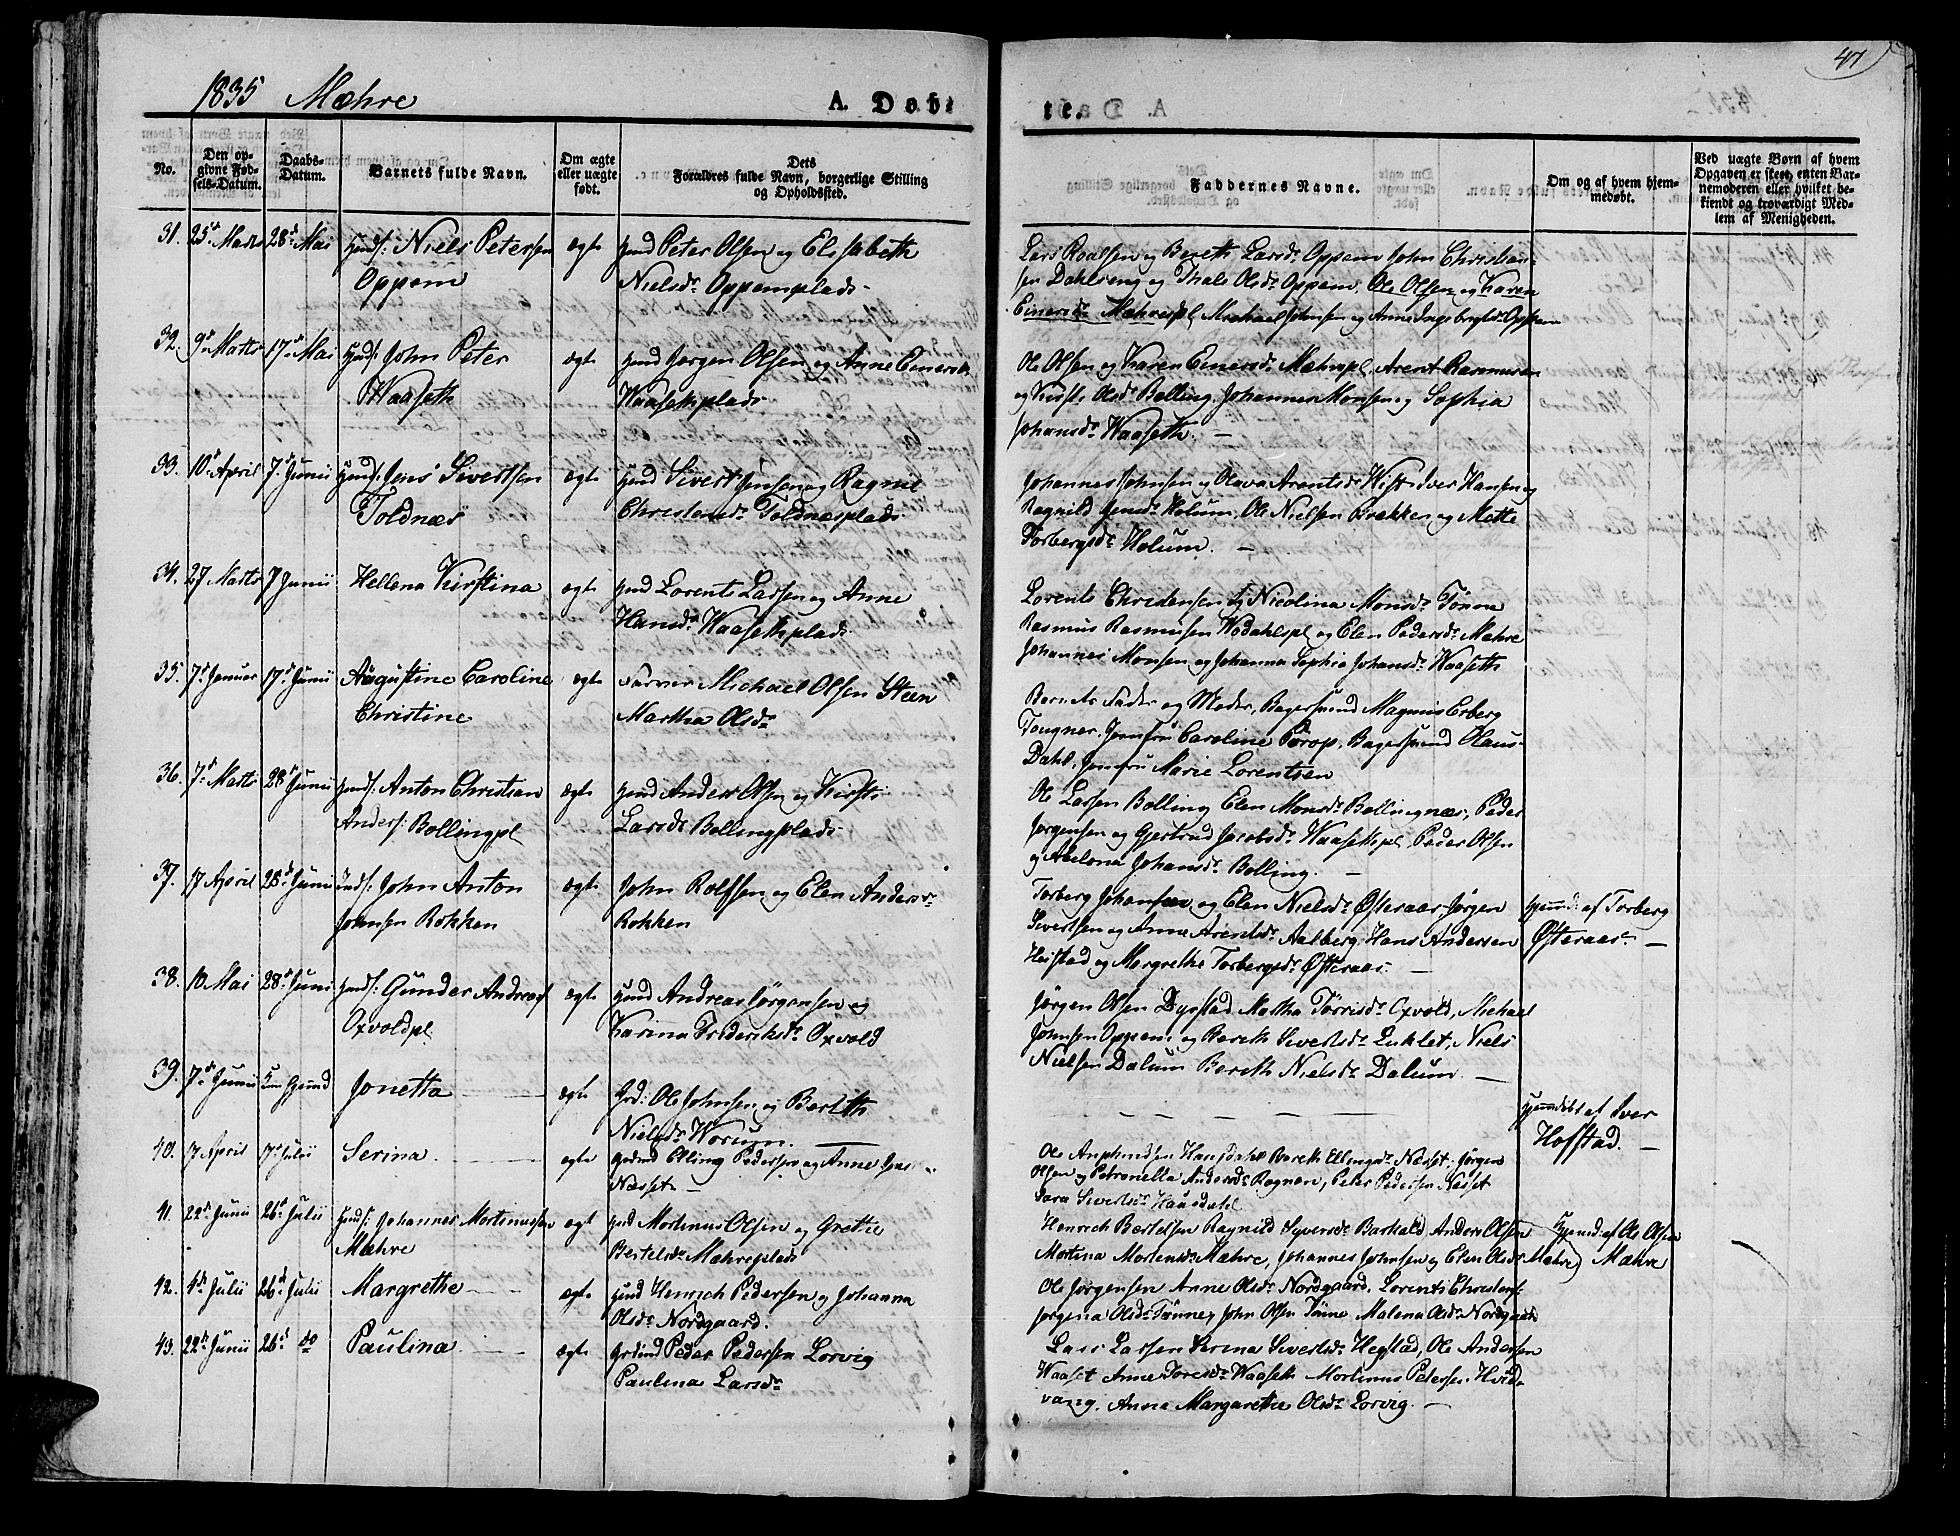 1835 Mæhre
A. Døbte.
47
No.
Den opgivne Fødsels-Datum.
Daabs-Datum.
Barnets fulde Navn.
Om ægte eller uægte født.
Dets Forældres fulde Navn, borgerlige Stilling og Opholdsted.
Faddernes Navne.
Om og af hvem hjemmedøbt.
Ved uægte Børn af hvem Opgaven er skeet, enten Barnemoderen eller hvilket bekjendt og troværdigt Medlem af Menigheden.
31. 25de Marts 28de Mai Huusf: Niels Petersen ægte Huusmd Peter Olsen og Elisabeth
Oppem Nielsdr Oppemplads
Lars Roalsen og Bereth Larsdr Oppem John Christian-
sen Dahlseng og Thale Olsdr Oppem. Ole Olsen og Karen
Einersdr Mæhrespl Michael Johnsen og Anne Ingebrgtsdr Oppem
32. 9de Marts 17de Mai John Peter ægte Jørgen Olsen og Anne Einersdr
Waaseth Waasethplads
Ole Olsen og Karen Einersdr Mæhrepl. Arent Rasmusen
og Kirsti Olsdr Bolling. Johannes Monsen og Sophia
Johansdr Waaseth. —
33. 10de April 7de Junii Jens Sivertsen ægte Sivert Jensen og Ragnil
Toldnæs Christensdr Toldnæsplads
Johannes Johnsen og Olava Arentsdr Iver Hansen og
Ragnild Jensdr Holum, Ole Nielsen Qvakken og Mette
Torbergsdr Holum. —
34. 27 Marts 7 Junii Hellena Kirstina ægte Lorents Larsen og Anne
Hansdr Waasethplads
Lorents Christensen og Nicolina Monsdr Tønne
Rasmus Rasmusen Wodahlspl og Elen Pedersdr Mæhre
Johannes Monsen og Johanna Sophia Johansdr Waaseth
35. 7de Januar 17de Junii Augustine Caroline ægte Farver Michael Olsen Steen
Christine Martha Olsdr
Barnets Fader og Moder, Bagersvend Magnus Erberg
Tougner, Jomfru Caroline Purop, Bagersvend Olaus
Dahl, Jomfru Marie Lorentsen
36. 7de Marts 28de Junii Anton Christian ægte Anders Olsen og Kirsti
Anders: Bollingpl Larsdr Bollingplads
Ole Larsen Bolling Elen Monsdr Bollingnæs, Peder
Jørgensen og Gjertrud Jacobsdr Waasethpl. Peder Olsen
og Abelona Johansdr Bolling. —
37. 17 April 28de Junii John Anton ægte John Rolfsen og Elen Andersdr
Johnsen Rokken Rokken
Torberg Johansen og Elen Nielsdr Østeraas Jørgen
Sivertsen og Anne Arentsdr Aalberg, Hans Andersen
Heistad og Margrethe Torbergsdr Østeraas. —
Hjemd: af Torberg
Østeraas —
38. 10 Mai 28de Junii Gunder Andreas ægte Andreas Jørgensen og
Oxvoldpl Karina Frideriksdr Oxvold
Jørgen Olsen Dystad Martha Tørrisdr Oxvold, Michael
Johnsen Oppem og Bereth Sivertsdr Luklet, Niels
Nielsen Dalum Bereth Nielsdr Dalum. —
39. 7de Junii Jonetta ægte Ole Johnsen og Berith
Nielsdr Worum. —
Hjemdøbt af Iver
Hofstad. —
40. 17 April 17de Julii Serina ægte Elling Pedersen og Anne
Næsset —
Ole Amphindsen Haugdahl Bereth Ellingsdr Næsset, Jørgen
Olsen og Petronella Andersdr Rognan, Peter Pedersen Næsset
Sara Sivertsdr Haugdahl
41. 22de Junii 26de Julii Johannes Mortinussen ægte Mortinus Olsen og Grethe
Mæhre Bertelsdr Mæhreplads
Henrich Bertelsen Ragnild Syversdr Barkald, Anders Olsen
Mortina Mortensdr Mæhre, Johannes Johnsen og Elen Olsdr Mæhre
Hjemd: af Ole Olsen
Mæhre
42. 4de Julii 26de Julii Margrethe ægte Henrich Pedersen og Johanna
Olsdr Nordgaard.
Ole Jørgensen Anne Olsdr Nordgaard. Lorents Christens:
Jørgena Olsdr Tønne, John Olsen Tønne Malena Olsdr Nordgaard
43. 22de Junii 26de do Paulina ægte Peder Pedersen Lorvig
Paulina Larsdr
Lars Larsen Serina Sivertsdr Hegstad, Ole Andersen
Waaset Anne Toresdr Waaseth Mortinus Petersen Hvid-
vang. Anna Margarethe Olsdr Lorvig. —